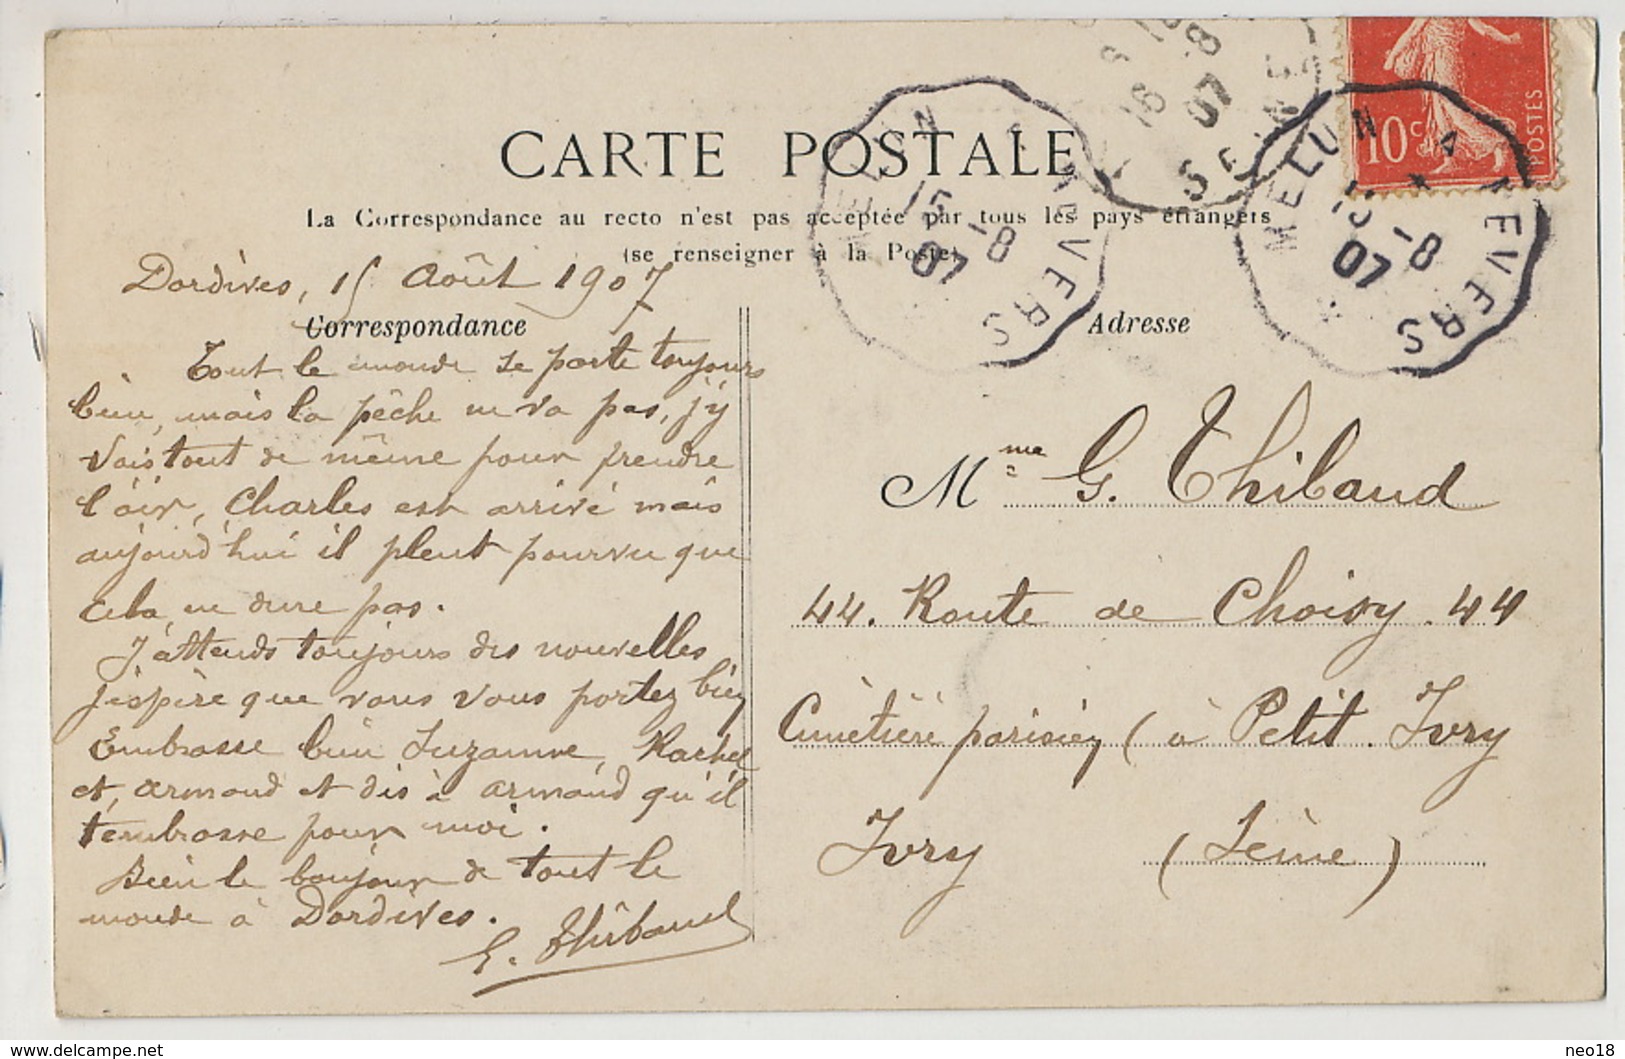 CARTE POSTALE
La Correspondance au recto n'est pas acceptée par tous les pays étrangers
(se renseigner à la Poste)
MELUN A NEVERS
15 -8
07
16 -8
07
SEINE
MELUN A NEVERS
15 -8
07
10c
POSTES
Dordives, 15 Août 1907
Correspondance
Tout le monde se porte toujours
bien, mais la pêche ne va pas, j'y
vais tout de même pour prendre
l'air, Charles est arrivé mais
aujourd'hui il pleut pourvu que
cela ne dure pas.
J'attends toujours des nouvelles
j'éspère que vous vous portez bien
Embrasse bien Suzanne, Rachel
et, Armand et dis à Armand qu'il
t'embrasse pour moi.
Bien le bonjour de tout le
monde à Dordives.
G. Thibaud
Adresse
Mme G. Thibaud
44. Route de Choisy. 44
Cimetière parisien (à Petit. Ivry
Ivry (Seine)
delcampe.net
neo18